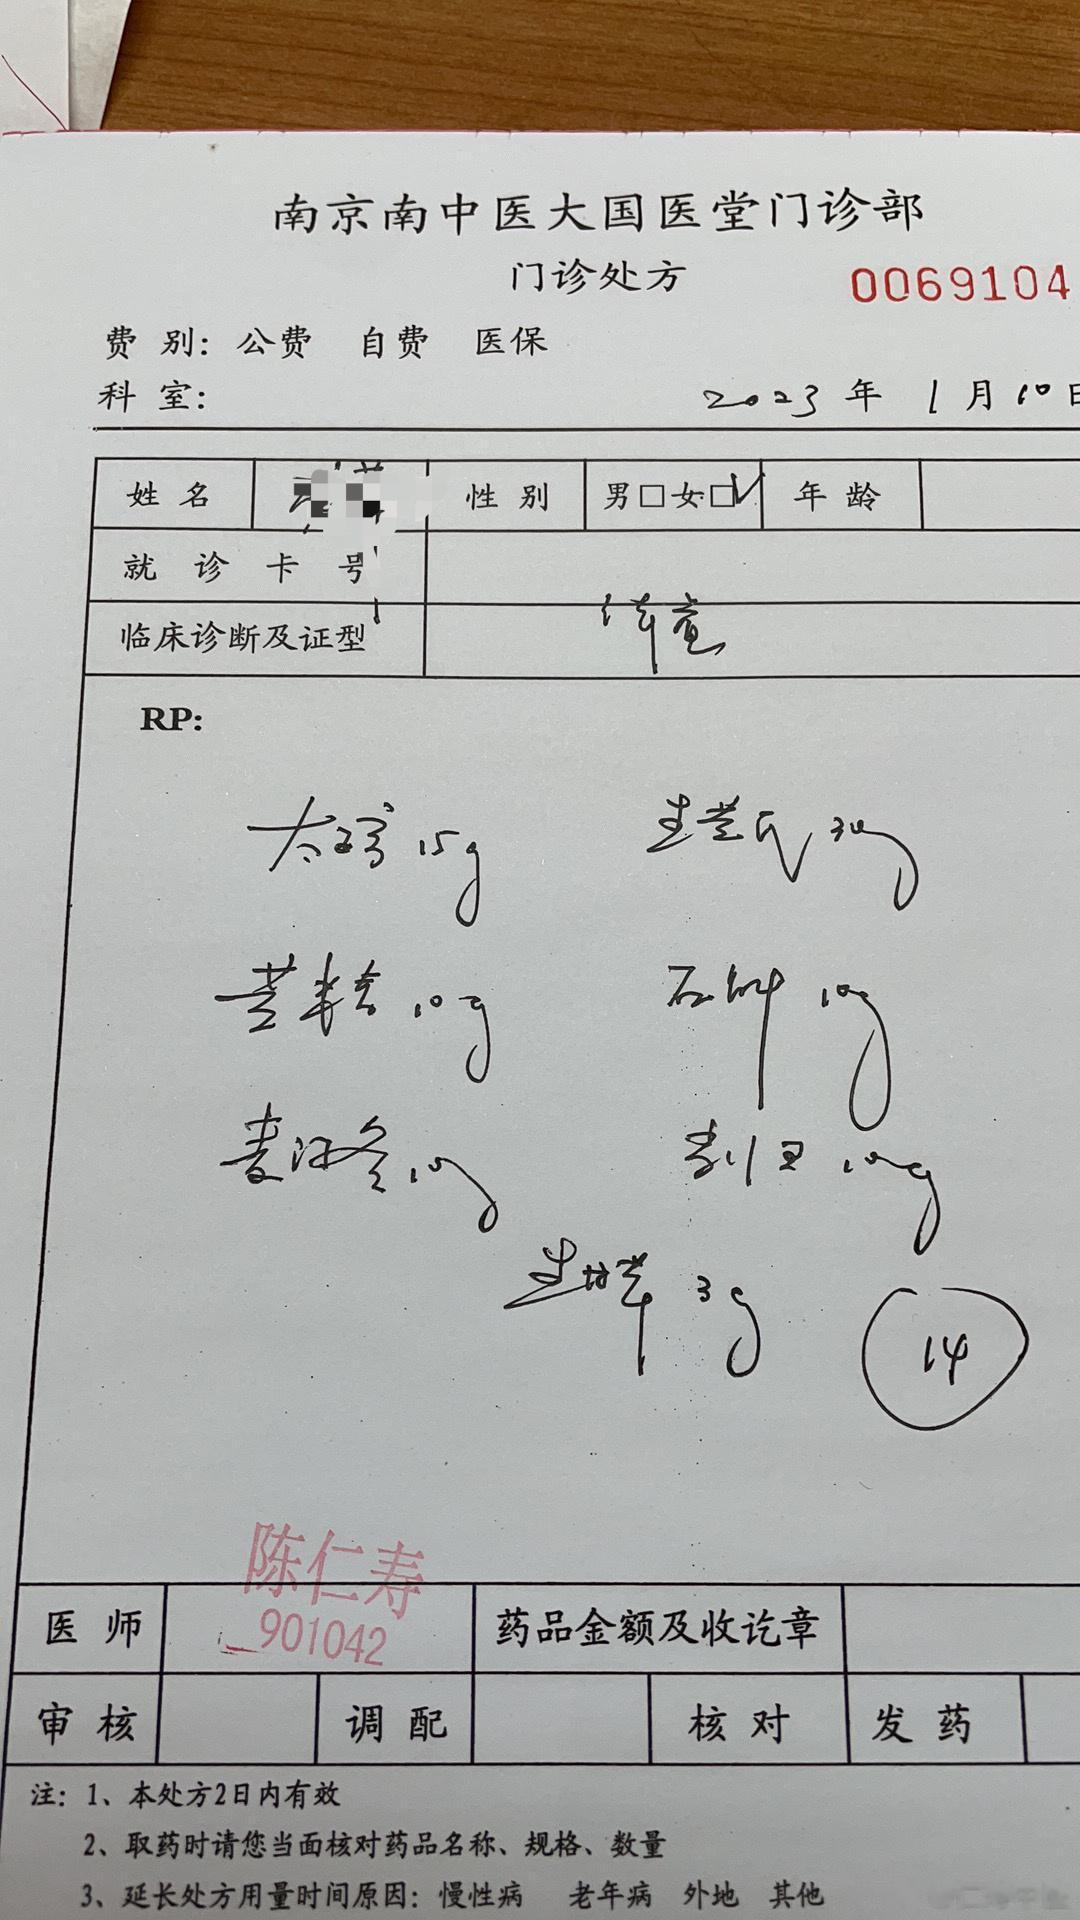 南京南中医大国医堂门诊部
门诊处方
0069104
费别：公费 自费 医保
科室：
2023年1月10日
姓名 性别 男□女□√ 年龄
就诊卡号
临床诊断及证型 体虚
RP:
太子参 15g 生黄芪 30g
黄精 10g 石斛 10g
麦门冬 10g 当归 10g
生甘草 3g
14
陈仁寿
901042
医师 药品金额及收讫章
审核 调配 核对 发药
注：1、本处方2日内有效
2、取药时请您当面核对药品名称、规格、数量
3、延长处方用量时间原因：慢性病 老年病 外地 其他